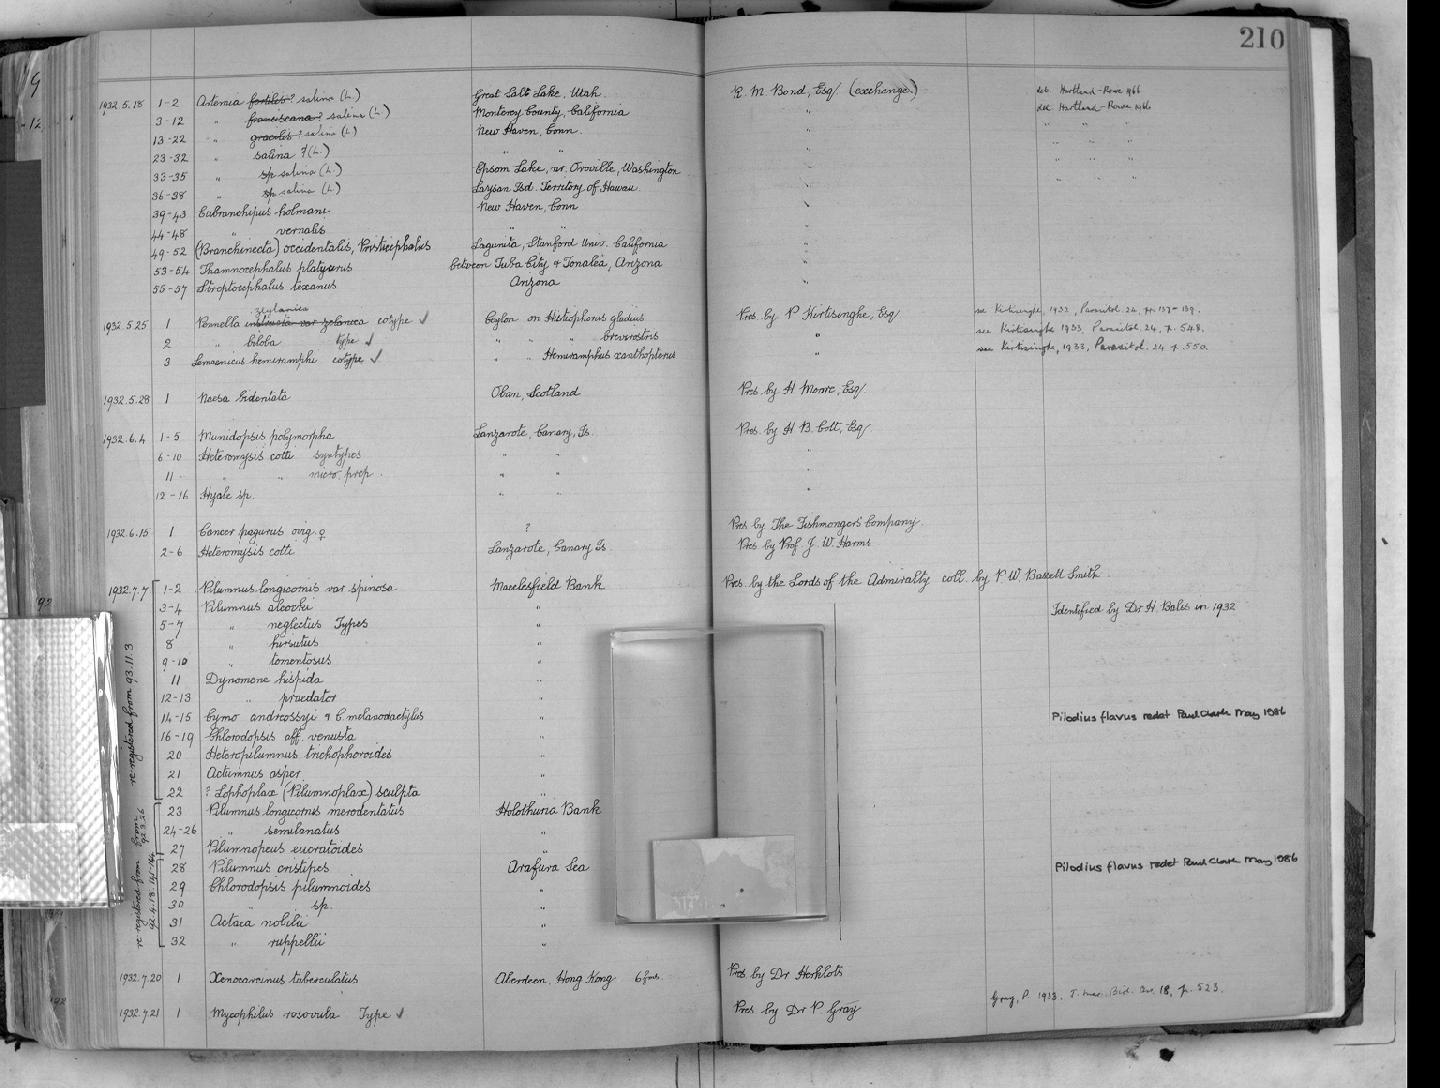 210
1932.5.18 1-2 Artemia fertilis? salina (L.) Great Salt Lake, Utah. R. M. Bond, Esq. (exchange.) det. Hartland-Rowe 1966
3-12 " franciscana? salina (L) Monterey County, California " det. Hartland-Rowe 1966
13-22 " gracilis? salina (L) New Haven, Conn. " " " "
23-32 " salina ? (L.) " " " " " "
33-35 " sp salina (L.) Epsom Lake, nr. Oroville, Washington " " " "
36-38 " sp salina (L) Laysan Isd. Territory of Hawaii. " " " "
39-43 Eubranchipus holmani. New Haven, Conn "
44-48 " vernalis " " "
49-52 (Branchinecta) occidentalis, Pristicephalus Lagunita, Stanford Univ. California "
53-54 Thamnocephalus platyurus between Tuba City & Tonalea, Arizona "
55-57 Streptocephalus texanus Arizona "
zeylanica
1932.5.25 1 Pennella instructa var zeylanica cotype ✓ Ceylon on Histiophorus gladius Pres. by P Kirtisinghe, Esq see Kirtisinghe, 1932, Parasitol. 24, pp. 137-139.
2 " biloba type ✓ " " " brevirostris " see Kirtisinghe 1933, Parasitol. 24, p. 548.
3 Lernaenicus hemirhamphi cotype ✓ " " Hemiramphus xanthopterus " see Kirtisinghe, 1933, Parasitol. 24 p. 550.
1932.5.28 1 Naesa bidentata Oban, Scotland Pres. by H Moore, Esq
1932.6.4 1-5 Munidopsis polymorpha Lanzarote, Canary, Is. Pres. by H B. Cott, Esq
6-10 Heteromysis cotti syntypes " " "
11 " " micro. prep. " " "
12-16 Hyale sp. " " "
1932.6.15 1 Cancer pagurus ovig. ♀ ? Pres by The Fishmonger's Company.
2-6 Heteromysis cotti Lanzarote, Canary Is. Pres by Prof. J. W. Harms
1932.7.7 1-2 Pilumnus longicornis var spinosa. Macclesfield Bank Pres. by the Lords of the Admiralty coll. by P. W. Bassett Smith
3-4 Pilumnus alcocki " Identified by Dr H. Balss in 1932
5-7 " neglectus Types "
8 " hirsutus "
9-10 " tomentosus "
11 Dynomene hispida "
12-13 " praedator "
14-15 Cymo andreossyi & C. melanodactylus " Pilodius flavus redet Paul Clark May 1986
16-19 Chlorodopsis aff. venusta "
20 Heteropilumnus trichophoroides "
21 Actumnus asper "
22 ? Lophoplax (Pilumnoplax) sculpta "
re-registered from 93.11.3
23 Pilumnus longicornis merodentatus Holothuria Bank
24-26 " semilanatus "
27 Pilumnopeus eucratoides "
re registered from
28 Pilumnus cristipes Arafura Sea Pilodius flavus redet Paul Clark May 1986
29 Chlorodopsis pilumnoides "
30 " sp. "
31 Actaea nobilii "
32 " ruppellii "
re registered from
1932.7.20 1 Xenocarcinus tuberculatus Aberdeen, Hong Kong 6 fms. Pres by Dr Herklots
1932.7.21 1 Mycophilus rosovula Type ✓ Pres. by Dr P Gray Gray, P. 1933. J. Mar. Biol. Ass. 18, p. 523.